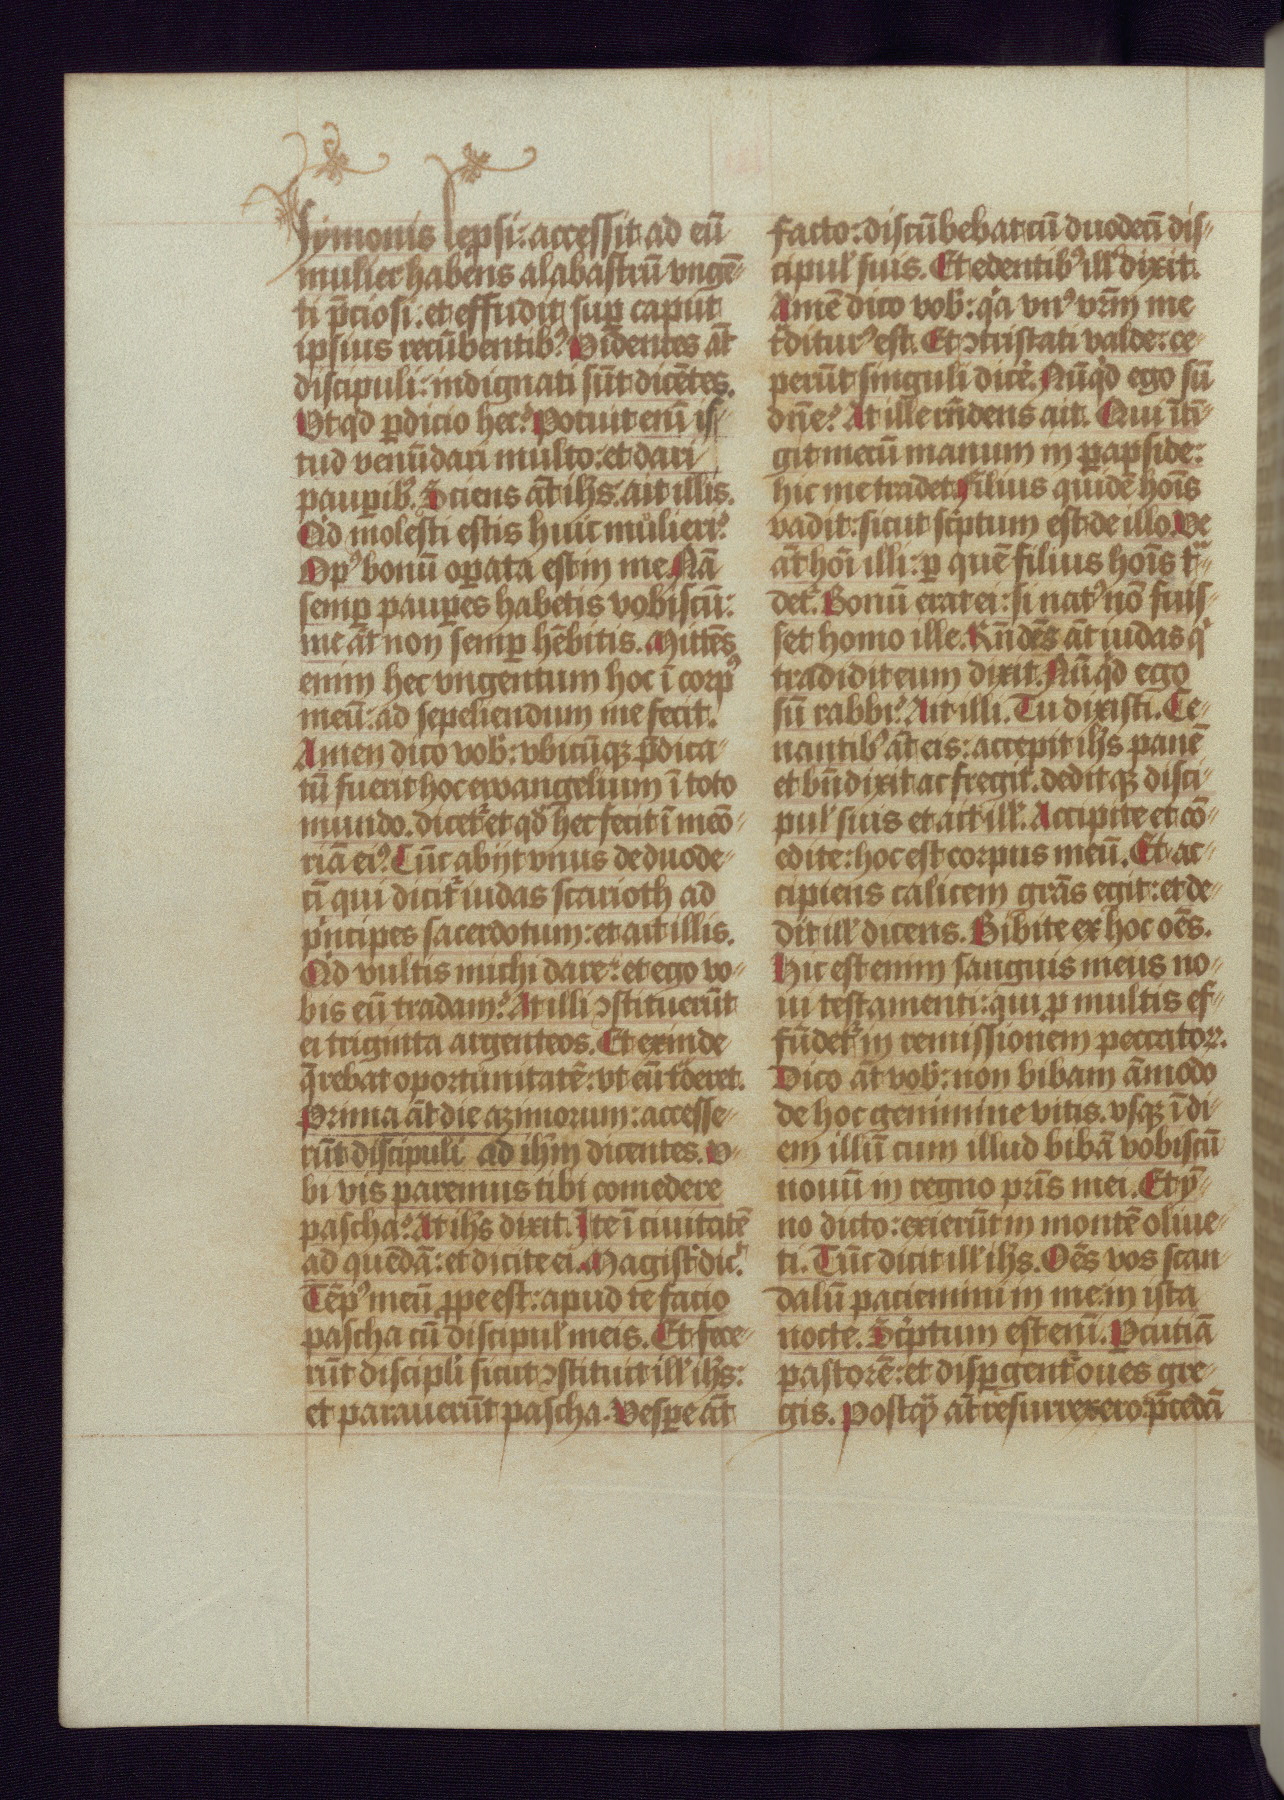 Symonis lep̄si: accessit ad eū
mulier habens alabastrū vngē-
ti p̄ciosi: et effudit sup̲ caput
ipsius recūbentibꝰ. Videntes āt
discipuli: indignati sūt dicētes.
Vt qd p̲dicio hec? Potuit enī is-
tud venūdari multo: et dari
paup̲ibꝰ. Sciens āt ihs̄. ait illis.
Qͥd molesti estis huic mulieri?
Opꝰ bonū op̲ata est in me. Nā
semp̲ paup̲es habetis vobiscū:
me āt non semp̲ hēbitis. Mittēs
enim hec vngentum hoc ī corpꝰ
meū: ad sepeliendum me fecit.
Amen dico vob̄: vbicūqꝫ p̄dica-
tū fuerit hoc ewangelium ī toto
mundo. dicet᷑ et qd̄ hec fecit ī meō-
riā eiꝰ. Tūc abijt vnus de duode-
cī qui dicit᷑ iudas scarioth ad
pͥncipes sacerdotum: et ait illis.
Qͥd vultis michi dare: et ego vo-
bis eū tradam? At illi ꝯstituerūt
ei triginta argenteos. Et exinde
q̄rebat oportunitatē: vt eū tͣderet.
Prima āt die azimorum: accesse-
rūt discipuli ad ihm̄ dicentes. V-
bi vis paremus tibi comedere
pascha? At ihs̄ dixit. Ite ī ciuitatē
ad quēdā: et dicite ei. Magistᷣ dic᷑.
Tēpꝰ meū ꝓpe est: apud te facio
pascha cū discipul᷑ meis. Et fece-
rūt discipl̄i sicut ꝯstituit ill᷑ ihs̄:
et parauerūt pascha. Vesp̲e āt
facto: discūbebat cū duodecī dis-
cipul᷑ suis. Et edentibꝰ ill᷑ dixit.
Amē dico vob̄: qͥa vnꝰ vr̄m me
tͣditurꝰ est. Et ꝯtristati valde: ce-
perūt singuli dic̄e. Nūqͥd ego sū
dn̄e? At ille rn̄dens ait. Qui ītī-
git mecū manum in p̲apside:
hic me tradet. Filius quidē hoīs
vadit: sicut scͥptum est de illo. Ve
āt hoī illi: p̲ quē filius hoīs tͣ-
det᷑. Bonū erat ei: si natꝰ nō fuis-
set homo ille. Rn̄dēs āt iudas qͥ
tradidit eum dixit. Nūqͥd ego
sū rabbi? Ait illi. Tu dixisti. Ce-
nantibꝰ āt eis: accepit ihs̄ panē
et bn̄dixit ac fregit. deditqꝫ disci-
pul᷑ suis et ait ill᷑. Accipite et cō-
edite: hoc est corpus meū. Et ac-
cipiens calicem grās egit: et de-
dit ill᷑ dicens. Bibite ex hoc oēs.
Hic est enim sanguis meus no-
ui testamenti: qui ꝓ multis ef-
fūdet᷑ in remissionem peccatoꝝ.
Dico āt vob̄: non bibam āmodo
de hoc genimine vitis. vsqꝫ ī di-
em illū cum illud bibā vobiscū
nouū in regno pr̄is mei. Et ȳ-
no dicto: exierūt in montē oliue-
ti. Tūc dicit ill᷑ ihs̄. Oēs vos scan-
dalū paciemini in me: in ista
nocte. Scͥptum est enī. Pcutiā
pastorē: et disp̲gent᷑ oues gre-
gis. Postqͣ̄ āt resurrexero: p̄cedā